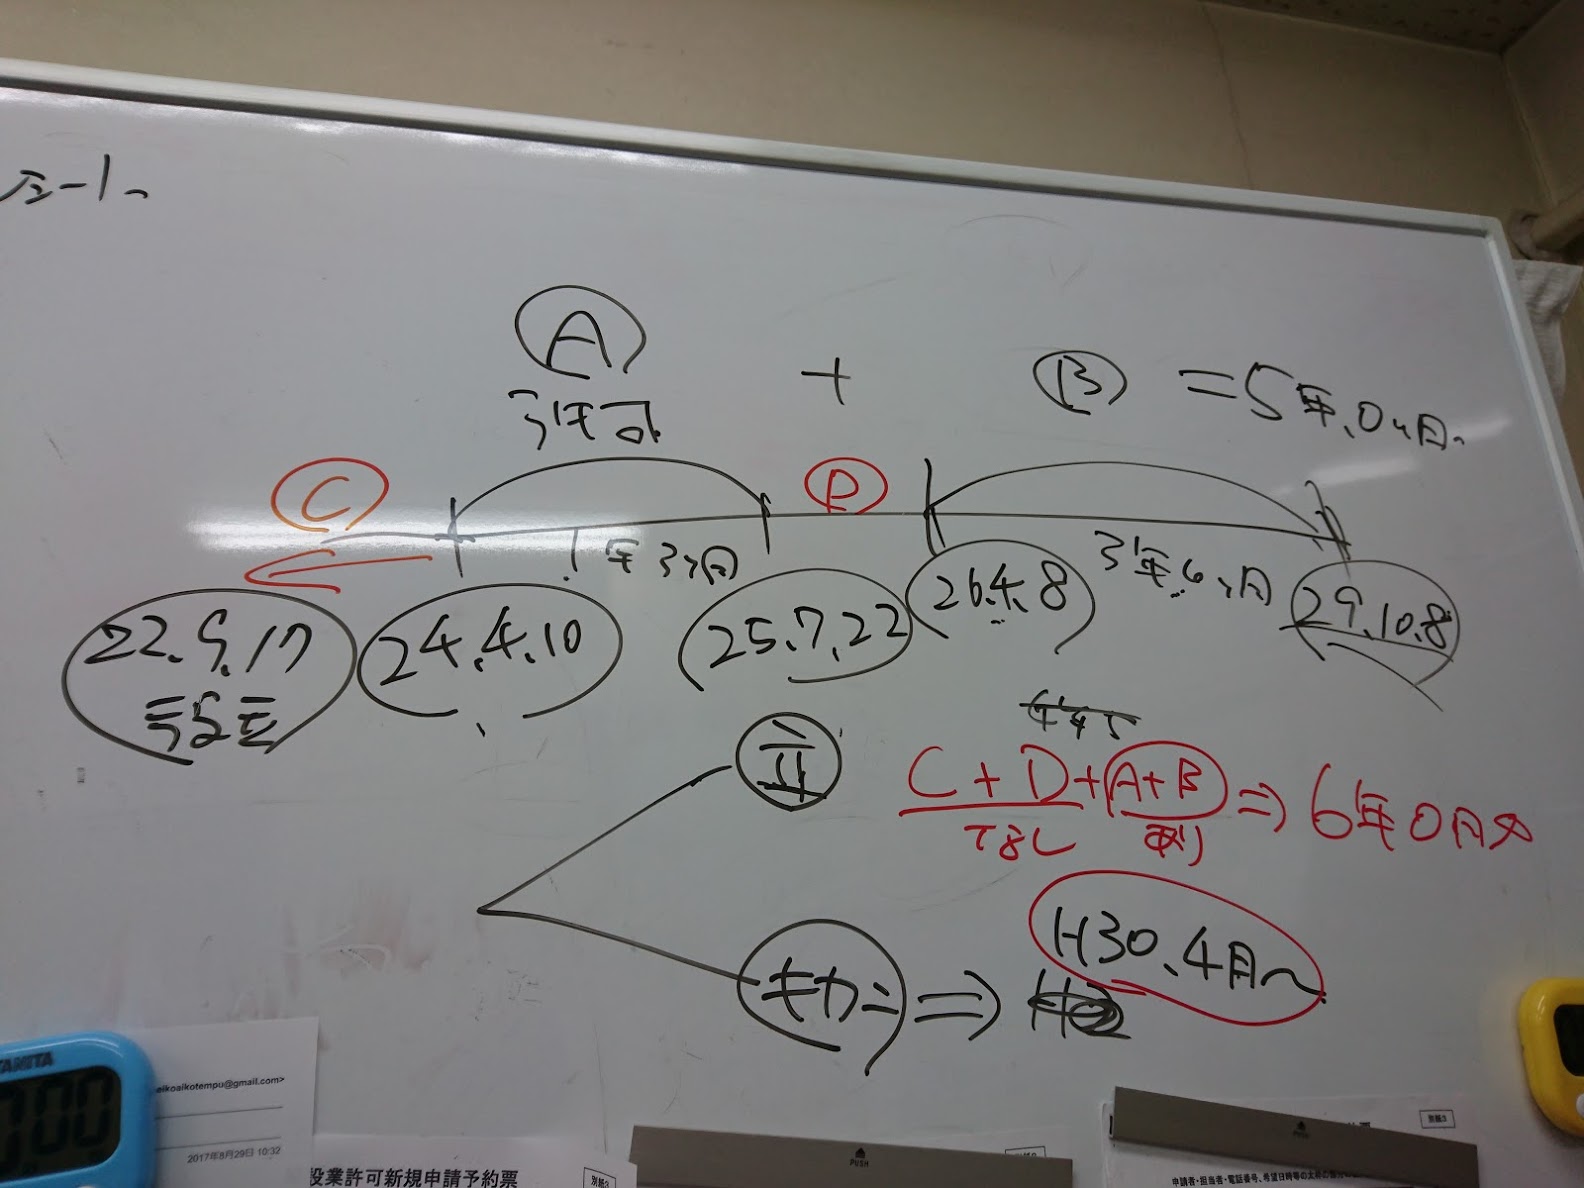 A + B =5年、0ヶ月
C D
1年3ヶ月 3年6ヶ月
22.9.17 24.4.10 25.7.22 26.4.8 29.10.8
設立
C+D+A+B⇒6年0月
なし あり
キカン⇒ H30.4月〜
TANITA
:00
eikoaikotempu@gmail.com>
2017年8月29日 10:32
設業許可新規申請予約票
別紙3
PUSH
別紙3
PUSH
申請者・担当者・電話番号、希望日時等の